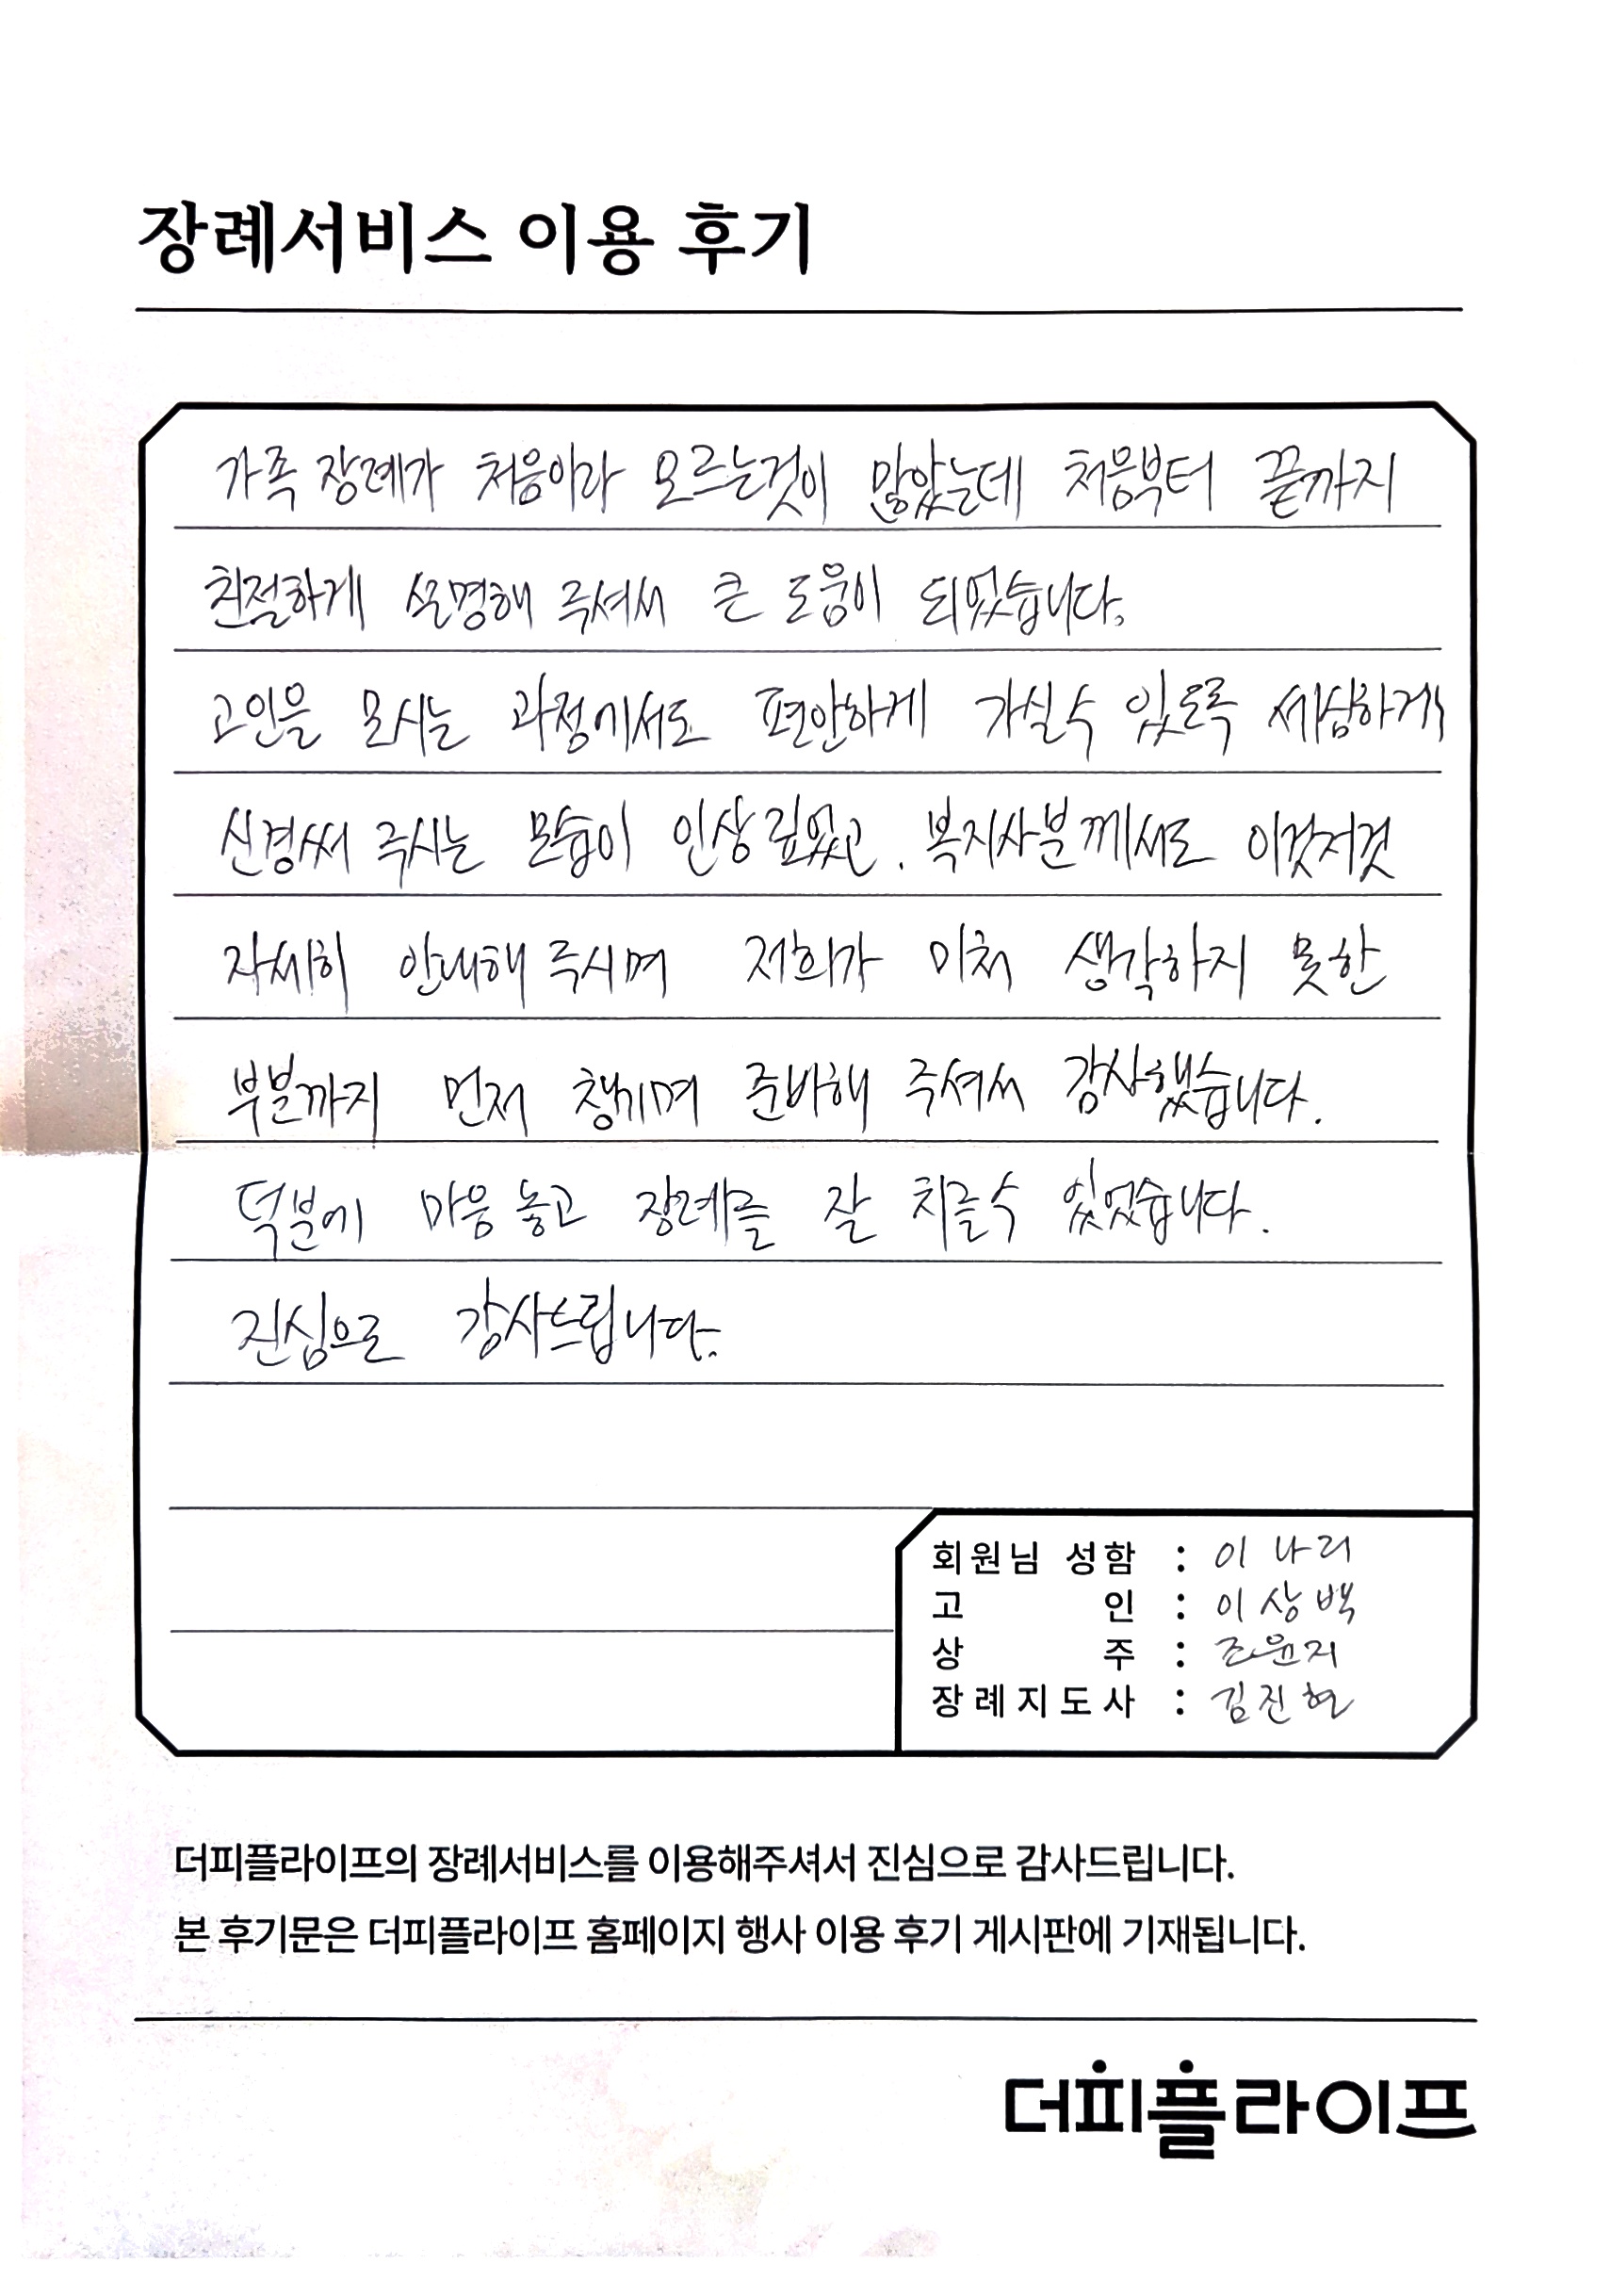 장례서비스 이용 후기
가족 장례가 처음이라 모르는것이 많았는데 처음부터 끝까지
친절하게 설명해 주셔서 큰 도움이 되었습니다.
고인을 모시는 과정에서도 편안하게 가실수 있도록 세심하게
신경써 주시는 모습이 인상 깊었고. 복지사분께서도 이것저것
자세히 안내해 주시며 저희가 미처 생각하지 못한
부분까지 먼저 챙기며 준비해 주셔서 감사했습니다.
덕분에 마음 놓고 장례를 잘 치를수 있었습니다.
진심으로 감사드립니다.
회원님 성함 : 이나리
고 인 : 이상백
상 주 : 조윤지
장례지도사 : 김진현
더피플라이프의 장례서비스를 이용해주셔서 진심으로 감사드립니다.
본 후기문은 더피플라이프 홈페이지 행사 이용 후기 게시판에 기재됩니다.
더피플라이프